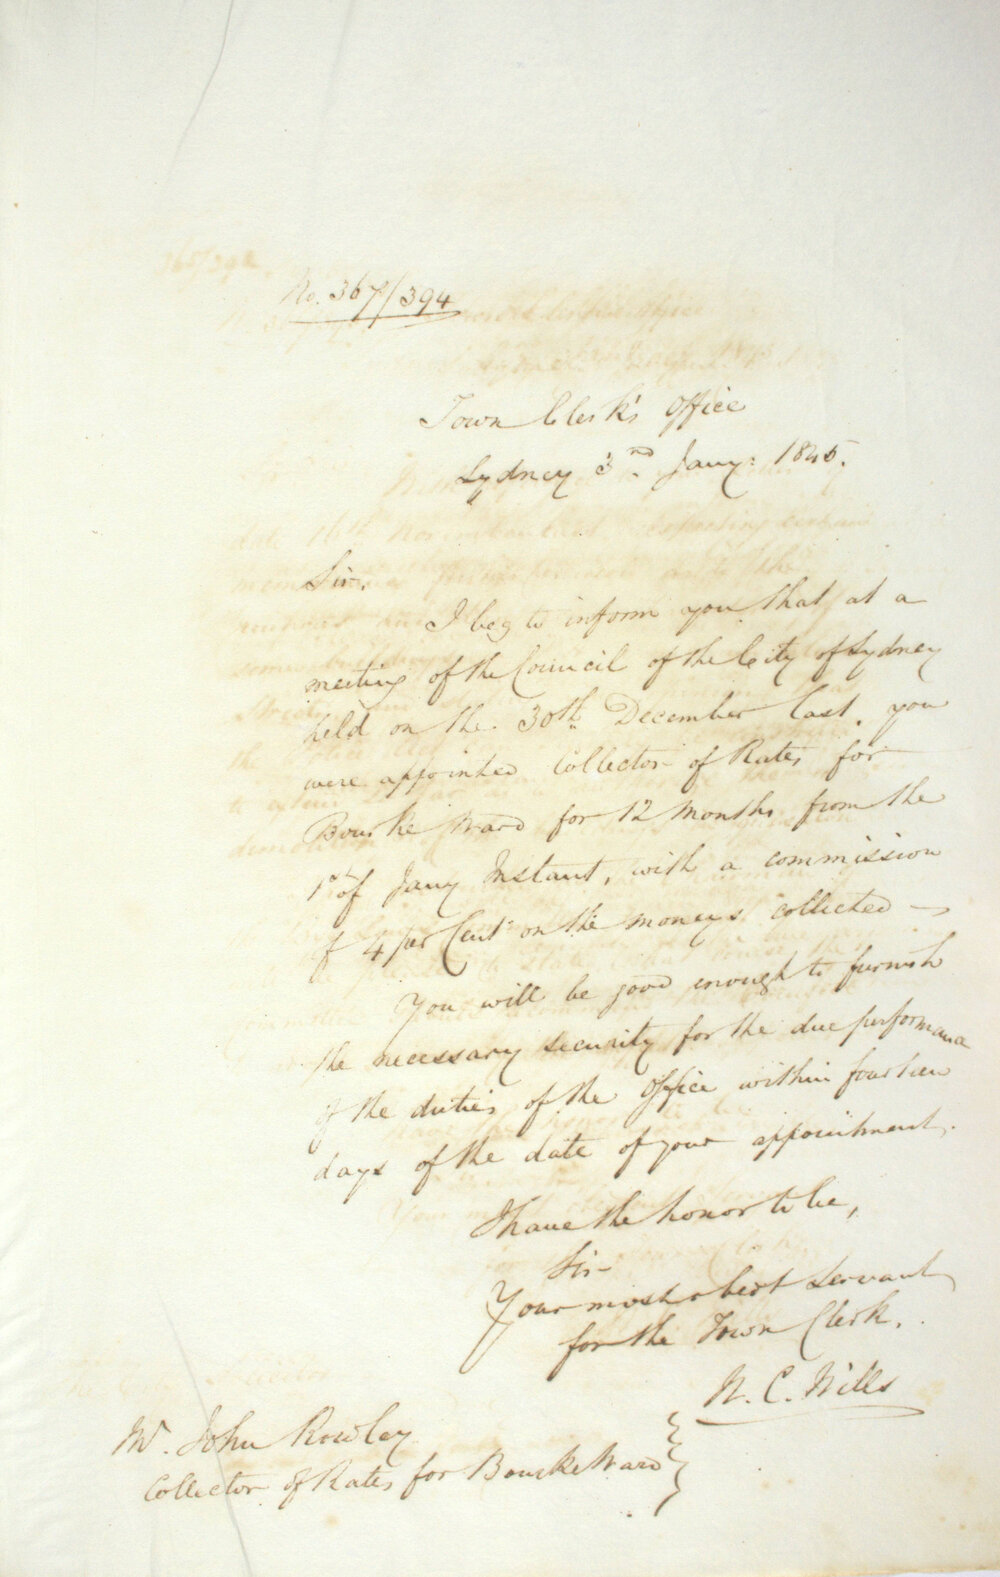 No. 367/394
Town Clerk's Office
Sydney 3rd Jany: 1845.
Sir,
I beg to inform you that at a
meeting of the Council of the City of Sydney
held on the 30th December last, you
were appointed Collector of Rates for
Bourke Ward for 12 Months from the
1st of Jany Instant, with a commission
of 4 per Cent on the moneys collected —
You will be good enough to furnish
the necessary security for the due performance
of the duties of the Office within fourteen
days of the date of your appointment.
I have the honor to be,
Sir
Your most obedt Servant
for the Town Clerk.
W. C. Wills
Mr. John Rowley
Collector of Rates for Bourke Ward